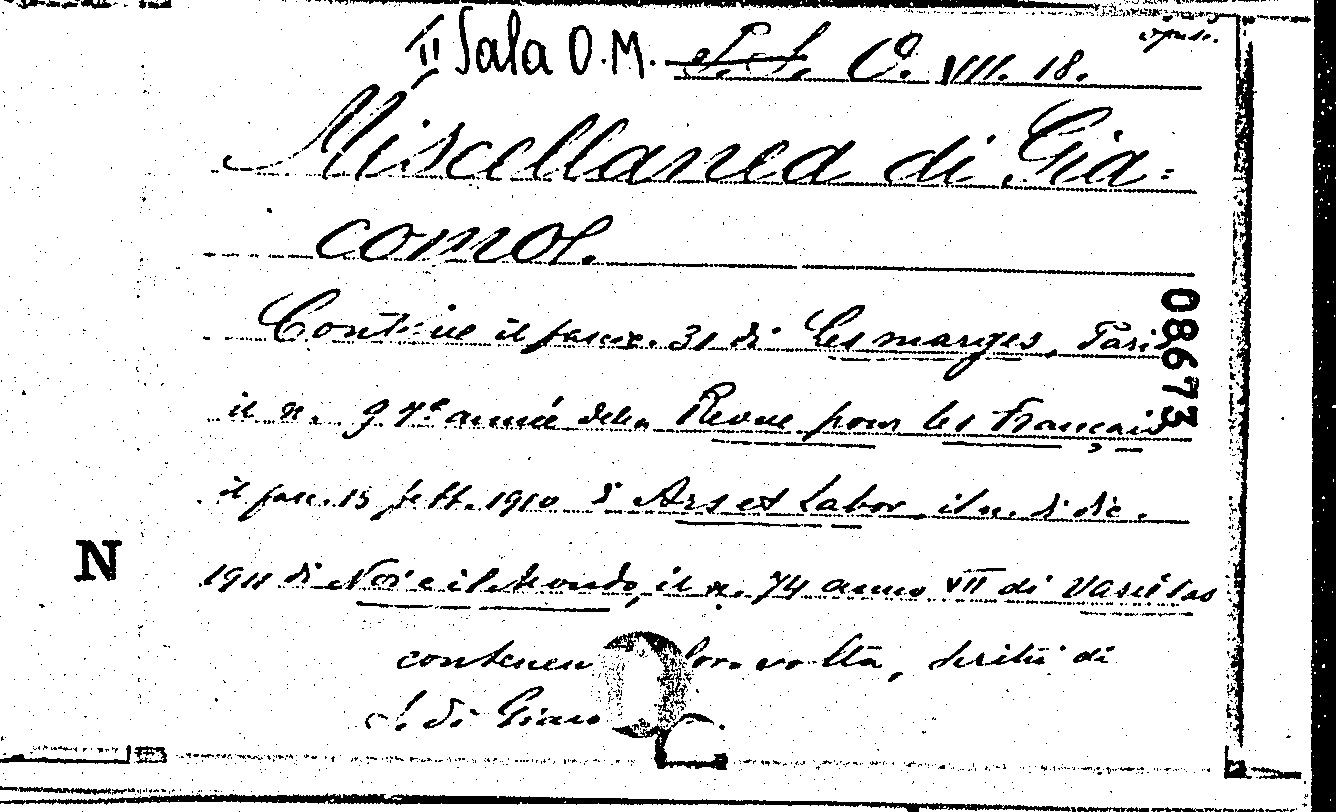 opusc.
II Sala O.M. S.S. O. VIII. 18.
Miscellanea di Gia=
como S.
Contiene il fasc. 31 di Les marges, Paris
il n. 9 7e année della Revue pour les Français
il fasc. 15 Sett. 1910 di Ars et Labor, il n. di dic.
1911 di Noi e il Mondo, il n. 74 anno VII di Varietas
contenen loro volta, scritti di
S. di Giaco
08673
N